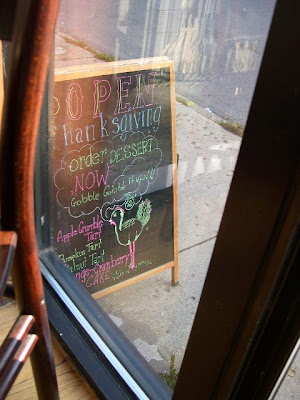 OPEN
hanksgiving
order DESSERT
NOW
Gobble Gobble it up!!
Apple Crumble
Tart
Pumpkin Tart
Walnut Tart
Cranberry
CAKE